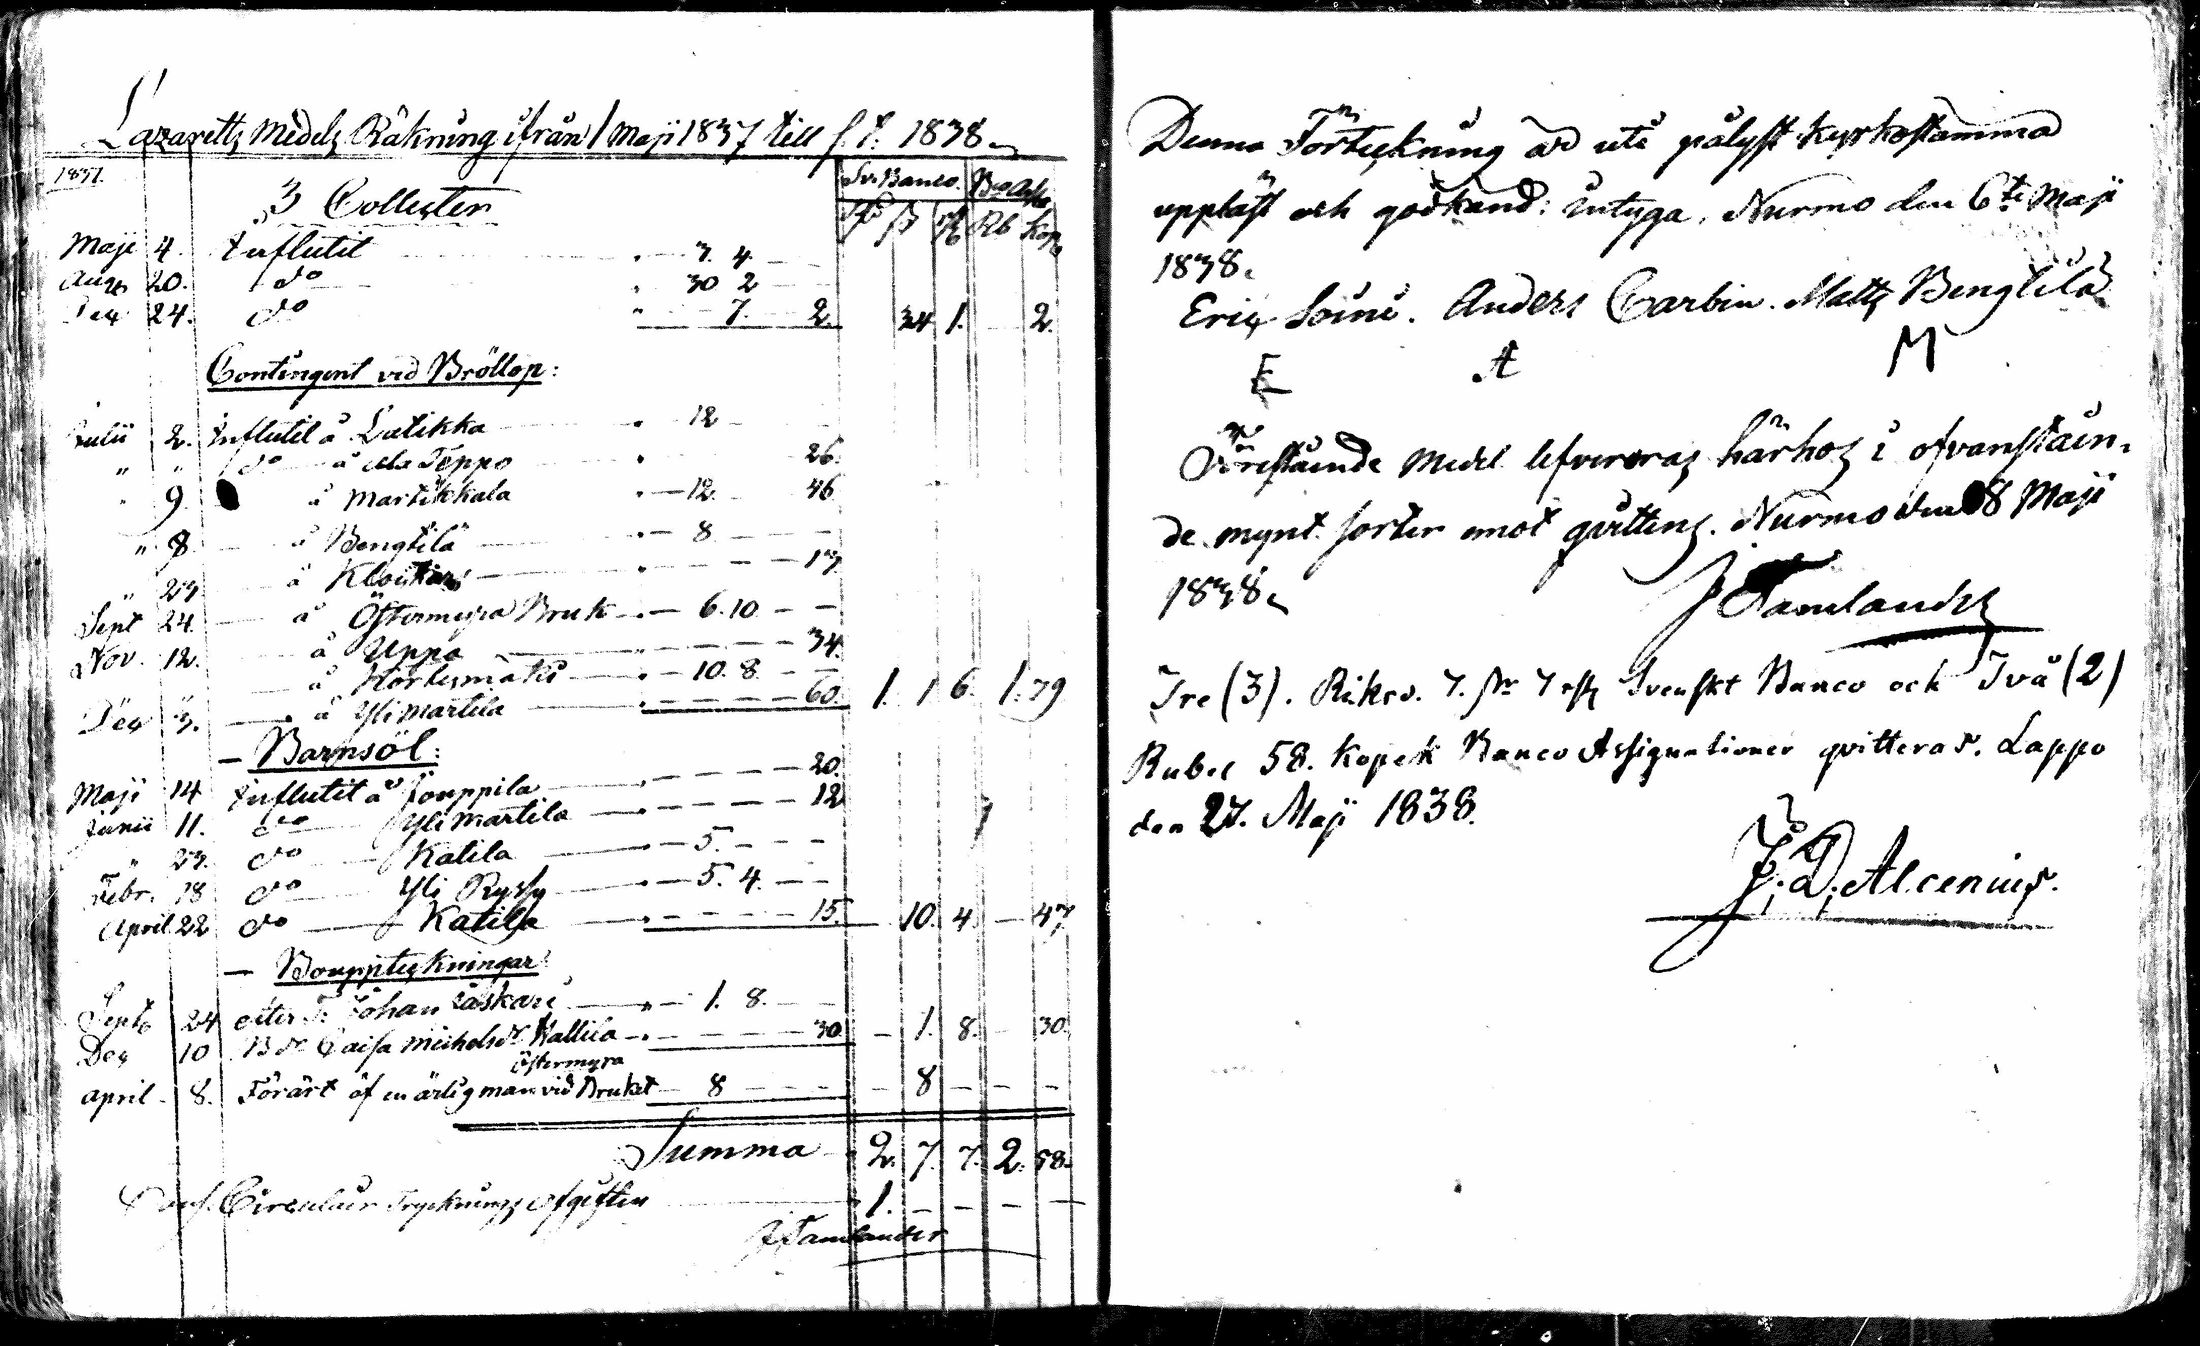 Lazaretts Medels Räkning ifrån 1 Maji 1837 till s. t. 1838.
1837. Sv. Banco. Bco Ass
3 Collecter Rd ß rst Rb Kop
Maji 4. Influtit 3. 4.
Aug 20. do 30 2
Dec 24. do 7. 2. 34 1. 2.
Contingent vid Bröllop:
Julii 2. Influtit å Latikka 12
" " do å Ala Teppo 26.
" 9. å Martikkala 12. 46
" 8 å Bengtilä 8
" 23 å 17
Sept 24. å Östermyra Bruk 6. 10
Nov. 12. å Uppa 34.
å 10. 8.
Dec 3. å Yli Martila 60. 1. 1 6. 1. 79
Barnsöl:
Maji 14 Influtit å Jouppila 20.
Junii 11. do Yli Martila 12
" 23. do Katila 5.
Febr. 18 do Yli Ryssy 5. 4.
April 22 do Katila 15. 10. 4. 47
Bouppteckningar
Sept 24 efter Johan 1. 8.
Dec 10 Caisa Michelsdr Wallila 30 1. 8. 30.
Östermyra
April 8. Förärt af en ärlig man vid Bruket 8 8
Summa 2. 7. 7. 2. 58.
Circulair Trycknings afgiften 1.
J Tamlander
Denna Förteckning är uti pålyst Kyrkostämma
uppläst och godkänd: intyga, Nurmo den 6te Maji
1838.
Eric Soini. Anders Carbin. Matts Bengtilä
E A M
Förestående Medel lefvereras härhos i ofvanståen-
de mynt sorter emot qvittens. Nurmo den 8 Maji
1838.
J Tamlander
Tre (3). Riksd. 7. ß 7 rst Svenskt Banco och Två (2)
Rubel 58. Kopek Banco Assignationer qvitteras. Lappo
den 27. Maji 1838.
J. D. Alcenius.